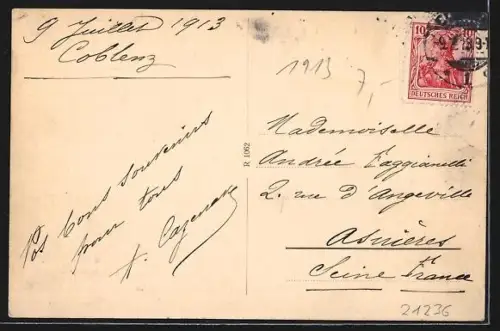 9 Juillet 1913
Coblenz
Nos bons souvenirs
pour tous
A. Cazenave
1913
7,-
10
DEUTSCHES REICH
R 1062
Mademoiselle
Andrée Faggianelli
2. rue d'Angeville
Asnières
Seine France
21236